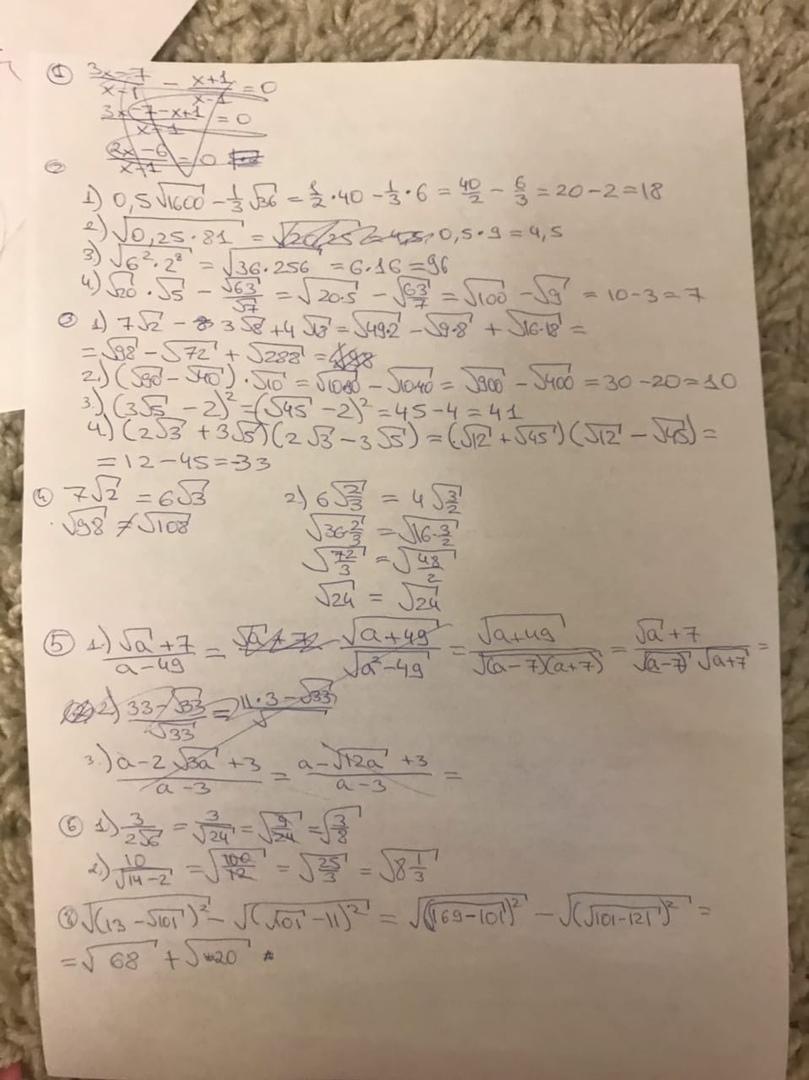 ① (3x-7)/(x-1) - (x+1)/(x-1) = 0
(3x-7-x+1)/(x-1) = 0
(2x-6)/(x+1) = 0
②
1) 0,5√1600 - 1/3 √36 = 1/2·40 - 1/3·6 = 40/2 - 6/3 = 20-2=18
2) √(0,25·81) = 0,5·9=4,5
3) √(6²·2⁸) = √(36·256) = 6·16=96
4) √20 · √5 - √63/√7 = √(20·5) - √(63/7) = √100 - √9 = 10-3=7
③ 1) 7√2 - 3√8 + 4√18 = √(49·2) - √(9·8) + √(16·18) =
= √98 - √72 + √288 =
2.) (√90 - √40) · √10 = - = √900 - √400 = 30-20=10
3.) (3√5 - 2)² = (√45 - 2)² = 45-4=41
4.) (2√3 + 3√5)(2√3 - 3√5) = (√12 + √45)(√12 - √45) =
= 12-45=-33
④ 7√2 = 6√3 2) 6√(2/3) = 4√(3/2)
√98 ≠ √108 √(36·2/3) = √(16·3/2)
√(72/3) = √(48/2)
√24 = √24
⑤ 1.) (√a+7)/(a-49) = √(a+49)/√(a²-49) = √(a+49)/√((a-7)(a+7)) = (√a+7)/(√(a-7) √(a+7)) =
2) (33-√33)/√33 = (11·3-√33)/√
3.) (a-2√3a+3)/(a-3) = (a-√12a+3)/(a-3) =
⑥ 1.) 3/(2√6) = 3/√24 = √(9/24) = √(3/8)
2.) 10/(√14-2) = √(100/12) = √(25/3) = √(8 1/3)
⑧ √(13-√101)² - √(√101-11)² = √(√169-101)² - √(√101-121)² =
= √68 + √-20